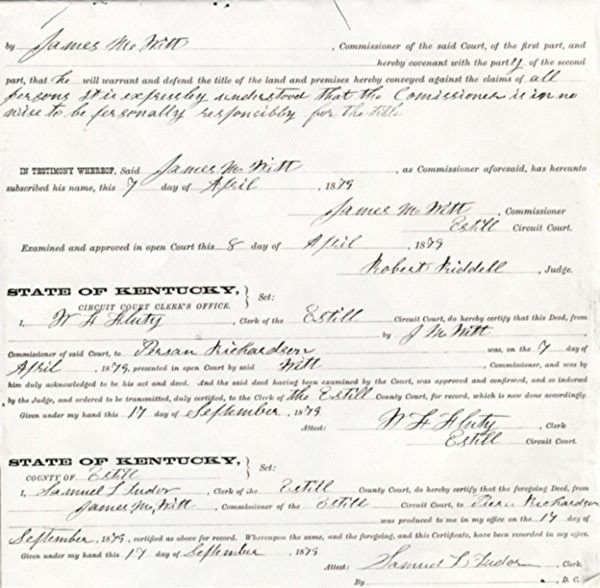 by James M Witt , Commissioner of the said Court, of the first part, and
hereby covenant with the party of the second
part, that he will warrant and defend the title of the land and premises hereby conveyed against the claims of all
persons it is expressby understood that the Comissioner is in no
wise to be personally responsibby for the title
IN TESTIMONY WHEREOF, Said James M Witt , as Commissioner aforesaid, has hereunto
subscribed his name, this 7 day of April , 1879
James M Witt , Commissioner
Estill Circuit Court.
Examined and approved in open Court this 8 day of April , 1879
Robert Riddell , Judge.
STATE OF KENTUCKY, } Sct:
CIRCUIT COURT CLERK'S OFFICE.
I, W F Fluty , Clerk of the Estill Circuit Court, do hereby certify that this Deed, from
by J M Witt
Commissioner of said Court, to Richardson was, on the 7 day of
April , 1879, presented in open Court by said Witt , Commissioner, and was by
him duly acknowledged to be his act and deed. And the said deed having been examined by the Court, was approved and confirmed, and so indorsed
by the Judge, and ordered to be transmitted, duly certified, to the Clerk of the Estill County Court, for record, which is now done accordingly.
Given under my hand this 17 day of September , 1879
Attest: W F Fluty , Clerk
Estill Circuit Court.
STATE OF KENTUCKY, } Sct:
COUNTY OF Estill
I, Samuel L Tudor , Clerk of the Estill County Court, do hereby certify that the foregoing Deed, from
James M, Witt , Commissioner of the Estill Circuit Court, to Richardson
was produced to me in my office on the 17 day of
September , 1879, certified as above for record. Whereupon the same, and the foregoing, and this Certificate, have been recorded in my office.
Given under my hand this 17 day of September , 1879
Attest: Samuel L Tudor , Clerk
By , D. C.